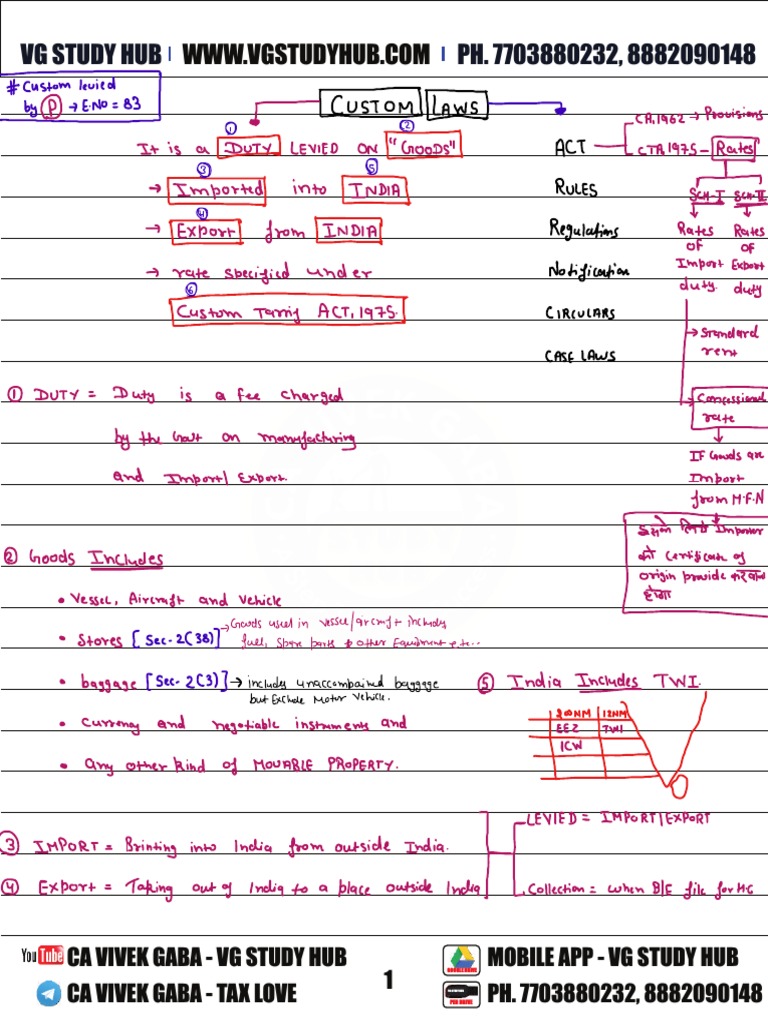 VG STUDY HUB | WWW.VGSTUDYHUB.COM | PH. 7703880232, 8882090148
# Custom levied
by P → E.No = 83
CUSTOM LAWS
① ②
It is a DUTY LEVIED ON "GOODS"
③ ⑤
→ Imported into INDIA
④
→ Export from INDIA
→ rate specified under
⑥
Custom Tarrif ACT, 1975.
ACT
CA, 1962 → Provisions
CTA, 1975 - Rates
RULES
Regulations
Notification
CIRCULARS
CASE LAWS
SCH-I SCH-II
Rates Rates
OF OF
Import Export
duty. duty
→ Standard
rent
Concessional
rate
IF Goods are
Import
from M.F.N
इसके लिये Importer
को Certificate of
origin provide करवाना
होगा
① DUTY = Duty is a fee charged
by the Govt on manufacturing
and Import/Export.
② Goods Includes
• Vessel, Aircraft and Vehicle
• Stores [Sec-2(38)] → Goods used in vessel/aircraft includes
fuel, Spare parts & other Equipment etc...
• baggage [Sec-2(3)] → includes unaccompained baggage
but Exclude Motor Vehicle.
• Currency and negotiable instruments and
• any other kind of MOVABLE PROPERTY.
⑤ India Includes TWI.
200NM 12NM
EEZ TWI
ICW
③ IMPORT = Brinting into India from outside India.
④ Export = Taking out of India to a place outside India
LEVIED = IMPORT/EXPORT
Collection = when B/E file for HC
You Tube CA VIVEK GABA - VG STUDY HUB
CA VIVEK GABA - TAX LOVE
1
GOOGLE DRIVE MOBILE APP - VG STUDY HUB
PEN DRIVE PH. 7703880232, 8882090148